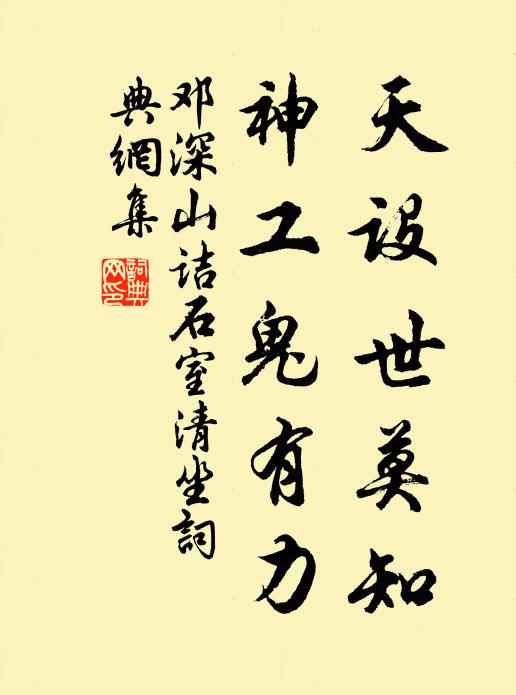 天设世莫知
神工鬼有力
邓深山诘石室清坐詞
典網集
詞典
网印